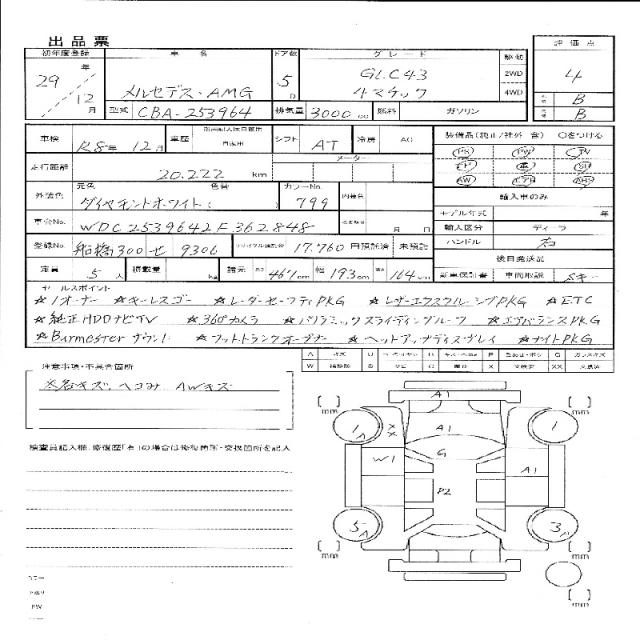 出品票
初年度登録 車名 ドア数 グレード 駆動 評価点
29年 12月 メルセデス・AMG 5D GLC43 4マチック 2WD 4WD 4
型式 CBA-253964 排気量 3000cc 燃料 ガソリン B B
車検 R8年 12月 車歴 自家用 シフト AT 冷房 AC 装備品(純正/社外 含) ○をつける
走行距離 20.222 km メーター
輸入車のみ
外装色 元色 ダイヤモンドホワイト 色替 カラーNo. 799 内装色
モデル年式 年
車台No. WDC2539642F362848 月 日 輸入区分 ディーラ
登録No. 船橋300せ 9306 リサイクル預託金 17.760 円預託済 未預託 ハンドル 右
後日発送品
定員 5人 積載量 kg 諸元 長さ 467cm 幅 193cm 高さ 164cm 新車保証書 車両取説 Sキー
セールスポイント
☆1オーナー ☆キーレスゴー ☆レーダーセーフティPKG ☆レザーエクスクルーシブPKG ☆ETC
☆純正HDDナビTV ☆360°カメラ ☆パノラミックスライディングルーフ ☆エアバランスPKG
☆Burmesterサウンド ☆フットトランクオープナー ☆ヘッドアップディスプレイ ☆ナイトPKG
注意事項・不具合箇所
各キズ、ヘコミ AWキズ
検査員記入欄、修復歴「有」の場合は修復箇所・交換箇所を記入
A1
1A XX A1 1
W1 G A1
P2
5A 3A
mm mm
mm mm